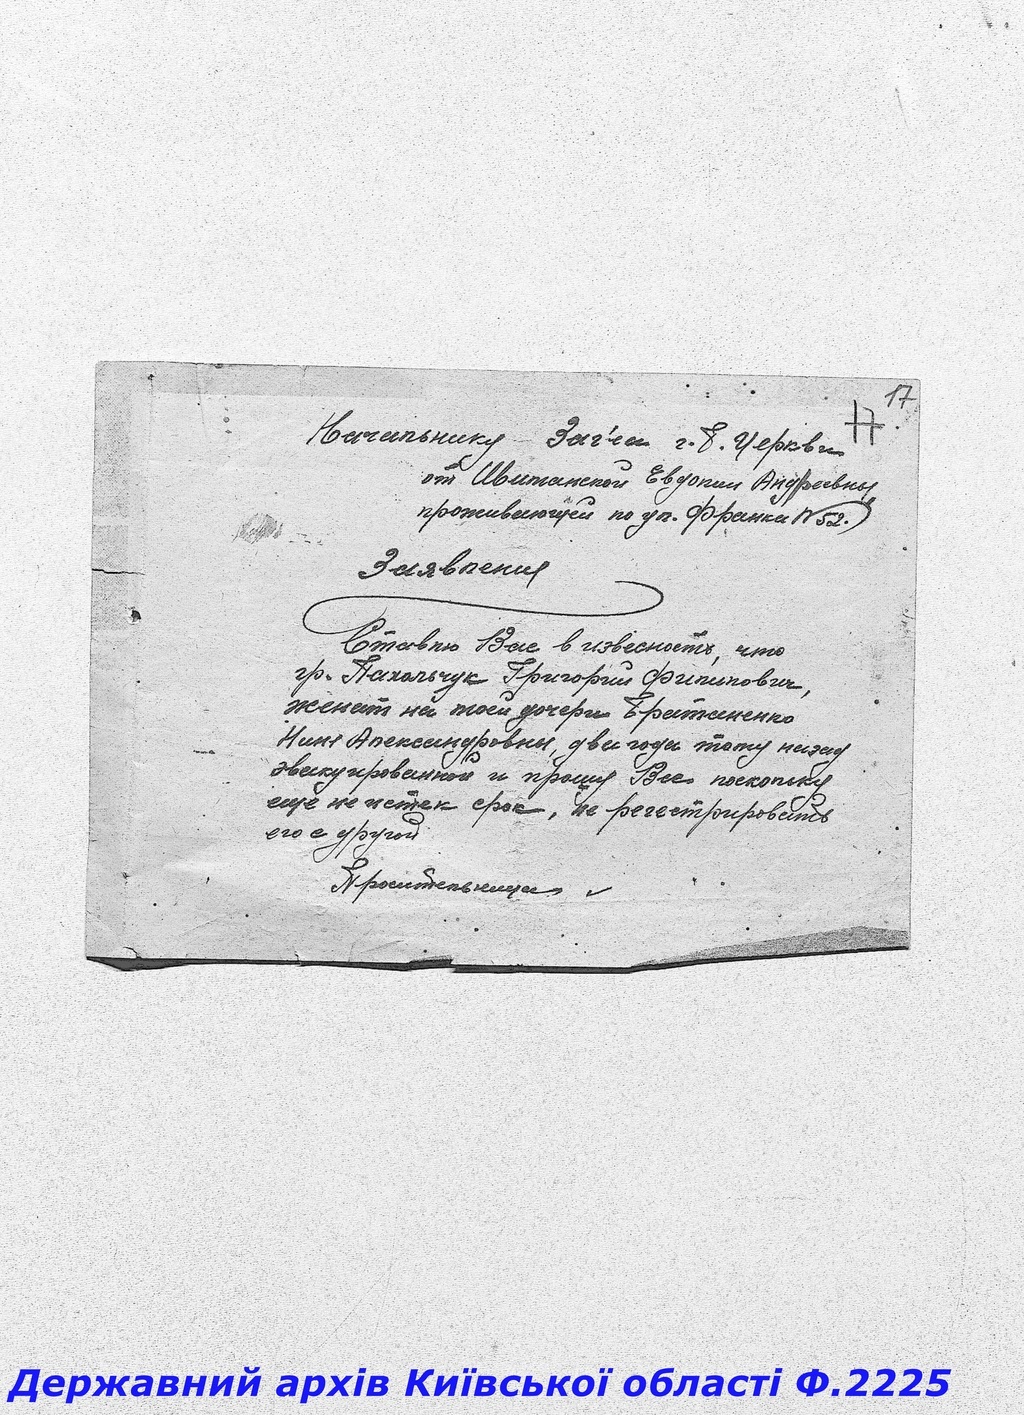 17
17.
Начальнику Заг'са г. Б. Церкви
от Швитанской Евдокии Андреевны
проживающей по ул. Франка №52.
Заявления
Ставлю Вас в извесность, что
гр. Пахольчук Григорий Филипович,
женат на моей дочери Братаненко
Нине Александровны, два года тому назад
эвакуированной и прошу Вас поскольку
еще не истек срок, не регестрировать
его с другой
Просительница
Державний архів Київської області Ф.2225